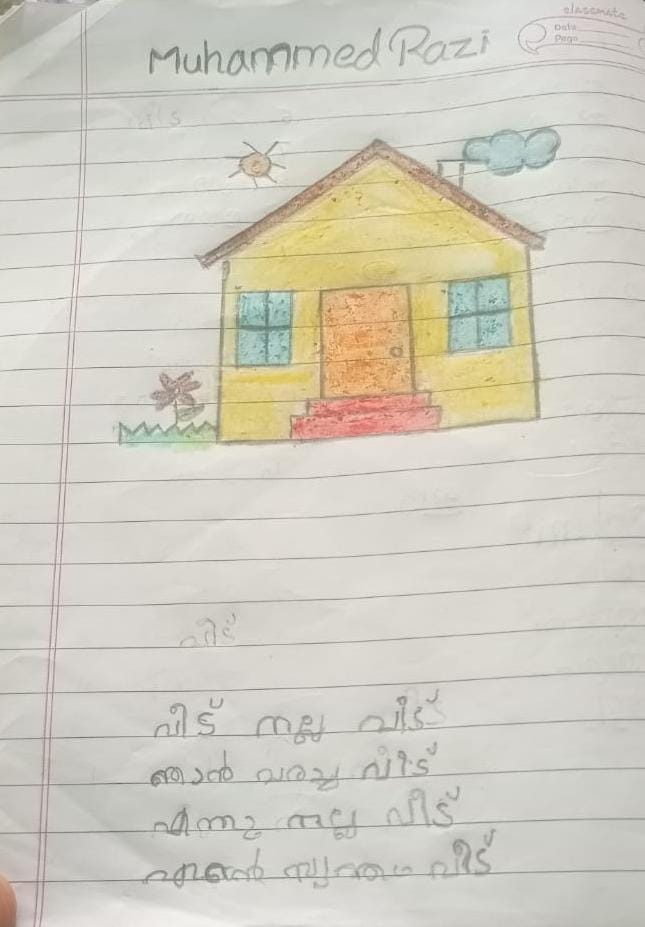 classmate
Date
Page
Muhammed Razi
വീട്
വീട് നല്ല വീട്
ഞാൻ വരച്ച വീട്
എന്തു നല്ല വീട്
എന്റെ സ്വന്തം വീട്